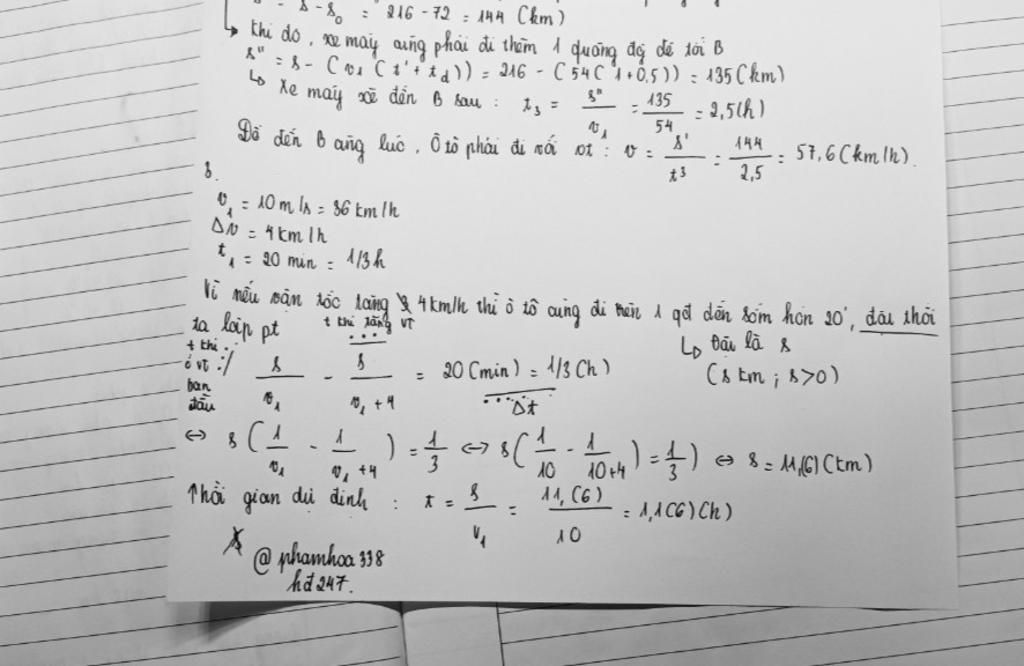 s - s₀ = 216 - 72 = 144 (km)
↳ Khi đó, xe máy cũng phải đi thêm 1 quãng đg để tới B
s'' = s - (v₁ (t' + t_d)) = 216 - (54(1+0,5)) = 135(km)
↳ Xe máy sẽ đến B sau : t₃ = s''/v₁ = 135/54 = 2,5(h)
Để đến B cùng lúc, Ô tô phải đi với vt : v = s'/t³ = 144/2,5 = 57,6(km/h).
8.
v₁ = 10 m/s = 36 km/h
Δv = 4 km/h
t₁ = 20 min = 1/3 h
Vì nếu vận tốc tăng 4km/h thì ô tô cũng đi trên 1 qđ đến sớm hơn 20',
ta lập pt
t khi tăng vT
↳ Đặt là s
(s km ; s>0)
t khi ở vt ban đầu
s/v₁ - s/(v₁ + 4) = 20(min) = 1/3 (h)
Δt
⇔ s(1/v₁ - 1/(v₁+4)) = 1/3 ⇔ s(1/10 - 1/(10+4)) = 1/3) ⇔ s = 11,(6)(km)
Thời gian dự định : t = s/v₁ = 11,(6)/10 = 1,1(6)(h)
@phamhoa338
hđ247.